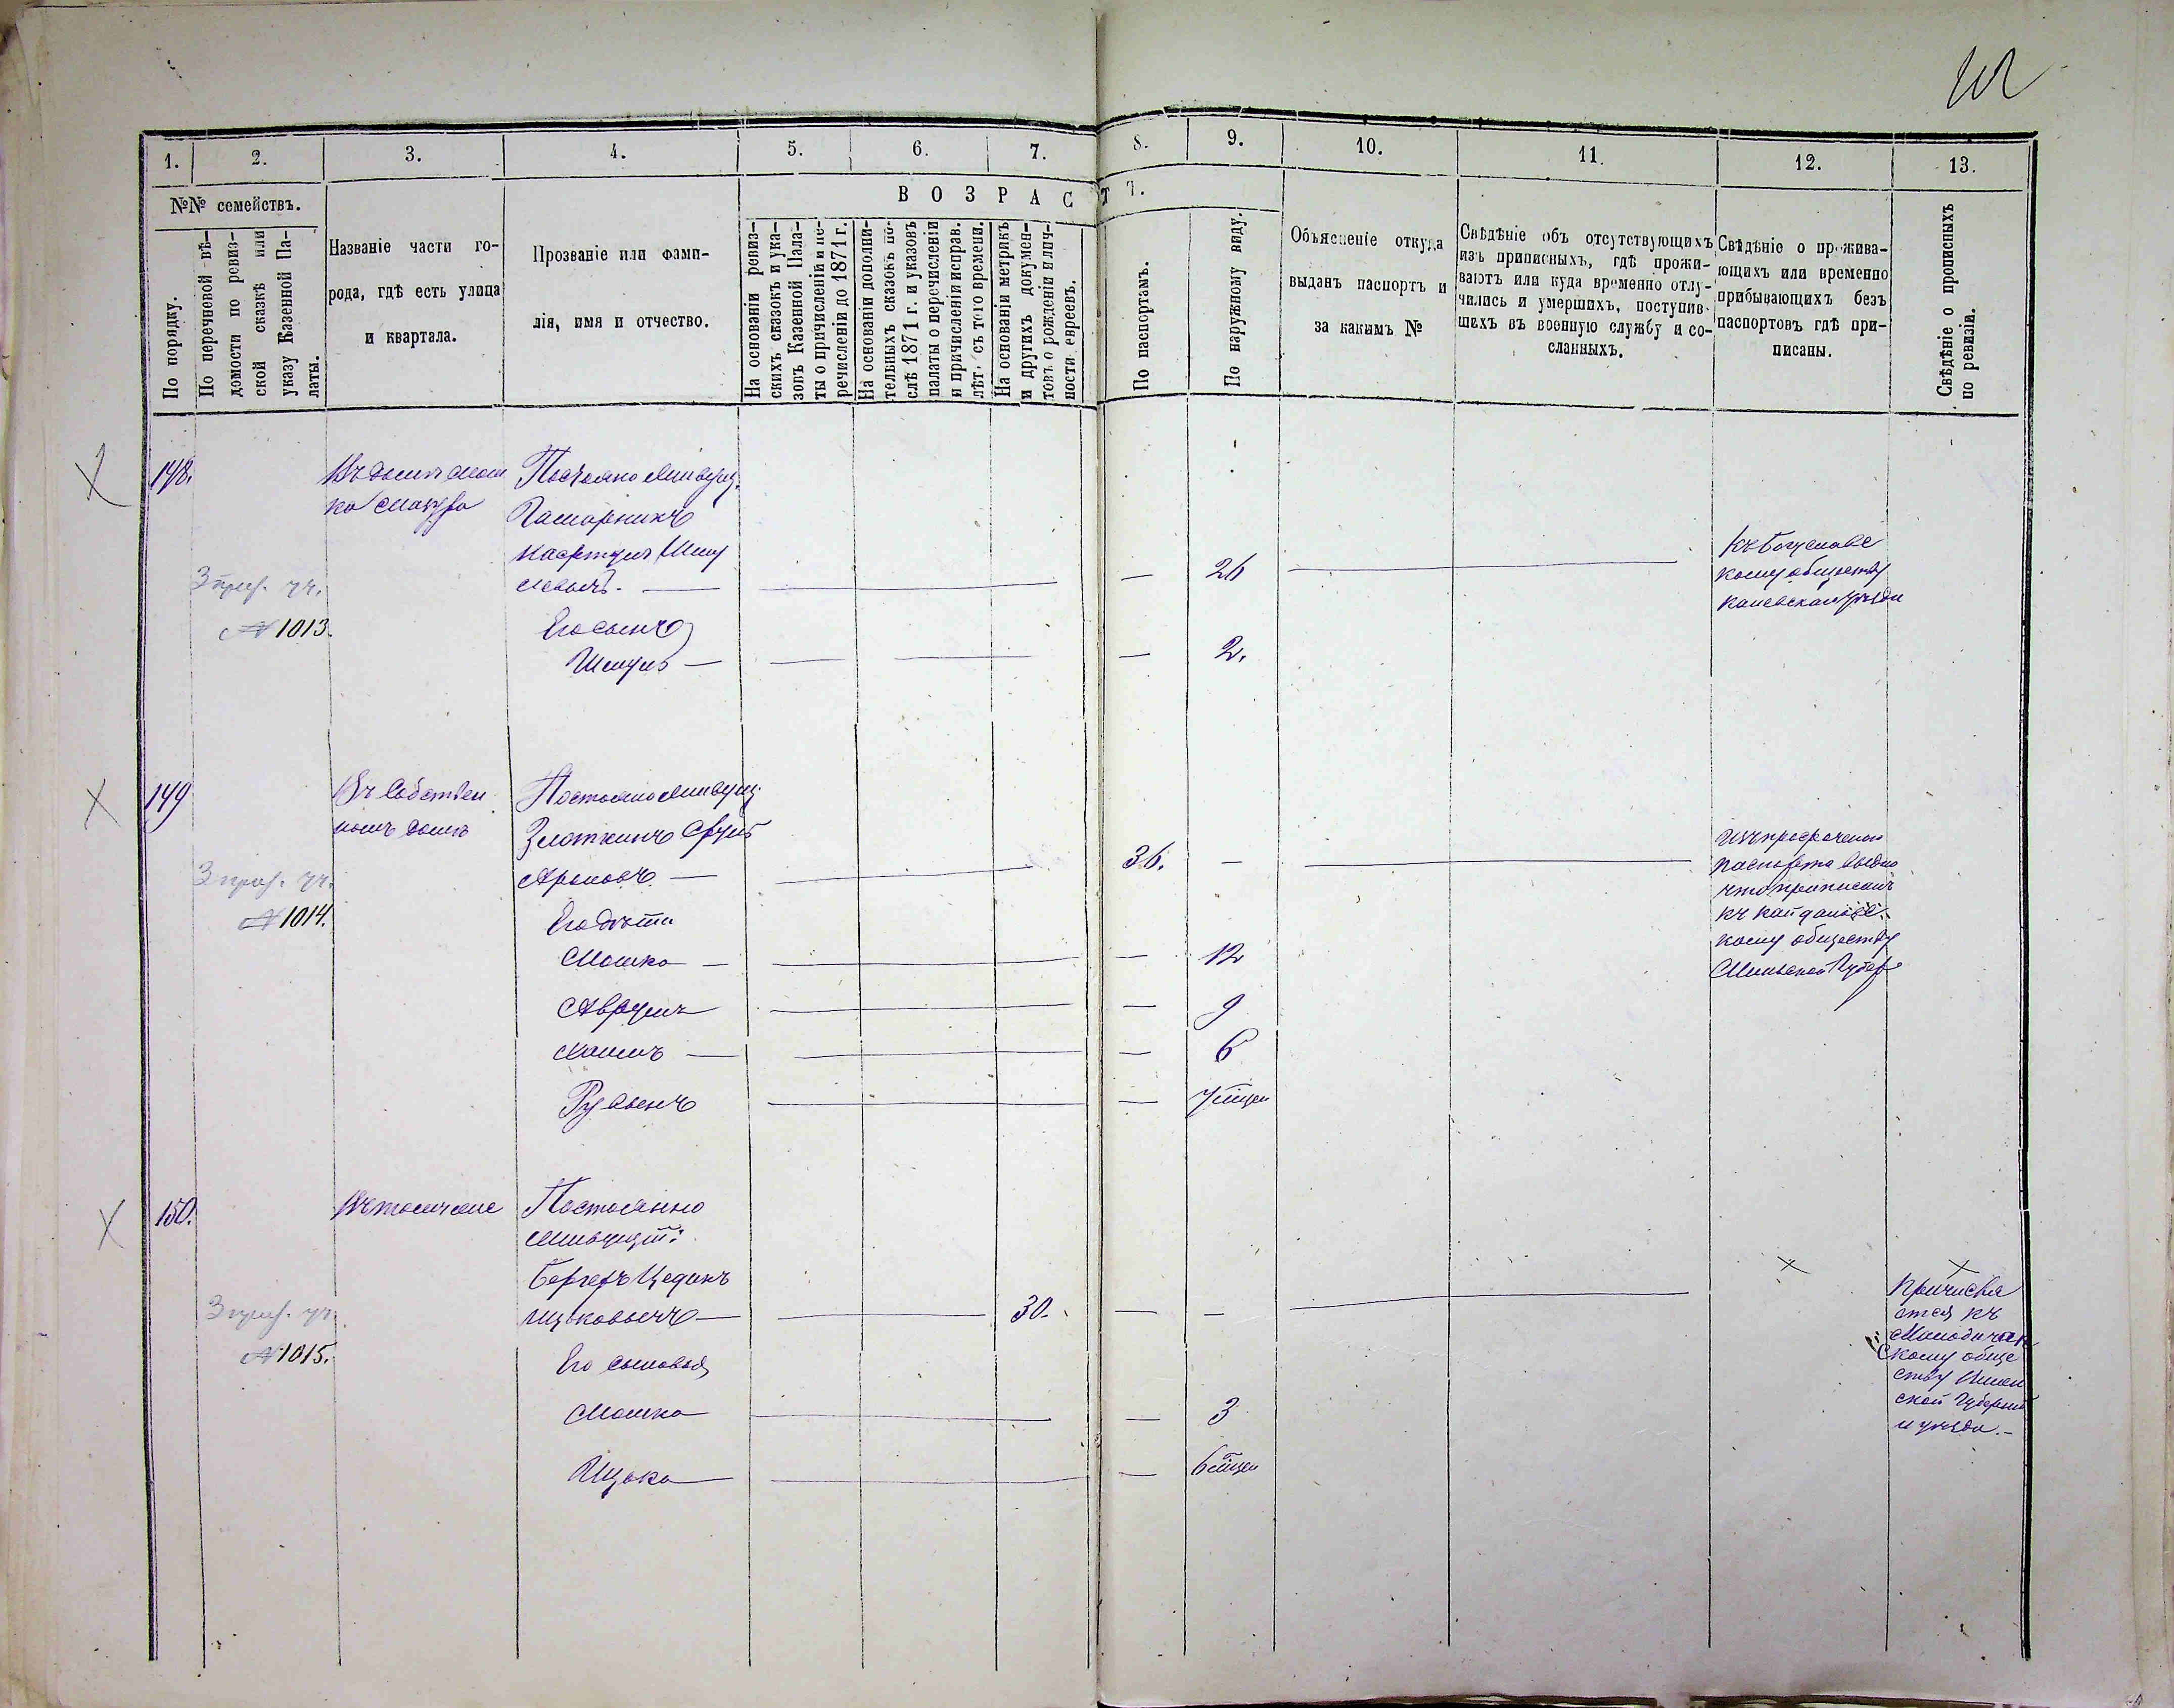 1.
2.
3.
4.
5.
6.
7.
8.
9.
10.
11.
12.
13.
№№ семействъ.
По порядку.
По перечневой вѣ-
домости по ревиз-
ской сказкѣ или
указу Казенной Па-
латы.
Названіе части го-
рода, гдѣ есть улица
и квартала.
Прозваніе или фами-
лія, имя и отчество.
ВОЗРАСТЪ.
На основаніи ревиз-
скихъ сказокъ и ука-
зовъ Казенной Пала-
ты о причисленіи и пе-
речисленіи до 1871 г.
На основаніи дополни-
тельныхъ сказокъ по-
слѣ 1871 г. и указовъ
палаты о перечисленіи
и причисленіи исправ.
лѣт. съ того времени.
На основаніи метрикъ
и другихъ докумен-
товъ о рожденіи и лич-
ности евреевъ.
По паспортамъ.
По наружному виду.
Объясненіе откуда
выданъ паспортъ и
за какимъ №
Свѣдѣніе объ отсутствующихъ
изъ приписныхъ, гдѣ прожи-
ваютъ или куда временно отлу-
чились и умершихъ, поступив-
шихъ въ военную службу и со-
сланныхъ.
Свѣдѣніе о прожива-
ющихъ или временно
прибывающихъ безъ
паспортовъ гдѣ при-
писаны.
Свѣдѣніе о прописныхъ
по ревизіи.
148.
Въ домѣ Мош
ка
Постоянно живущ.
Его сынъ
Шмуль —
26
2.
Къ Богуславс
кому обществу
Каневскаго уѣзда
3 приз. уч.
№ 1013.
149
Въ собствен
номъ домѣ
Постоянно живущ.
Злоткинъ Сруль
Ароновъ —
36. —
Его дѣти
Мошко — 12
Аврумъ 9
6
Рувинъ 7 мѣсяц
Изъ просроченаго
паспорта видно
что приписанъ
къ Кайдановс
кому обществу
Минской Губер
3 приз. уч.
№ 1014.
150.
Въ томъ же
Постоянно
живущій:
Бергеръ
Ицьковичъ — 30. — —
Его сыновья
Мошко 3
Ицько 6 мѣсяц
Причисля
ется къ
скому обще
ству Вилен
ской Губерніи
и уѣзда. —
3 приз. уч.
№ 1015.